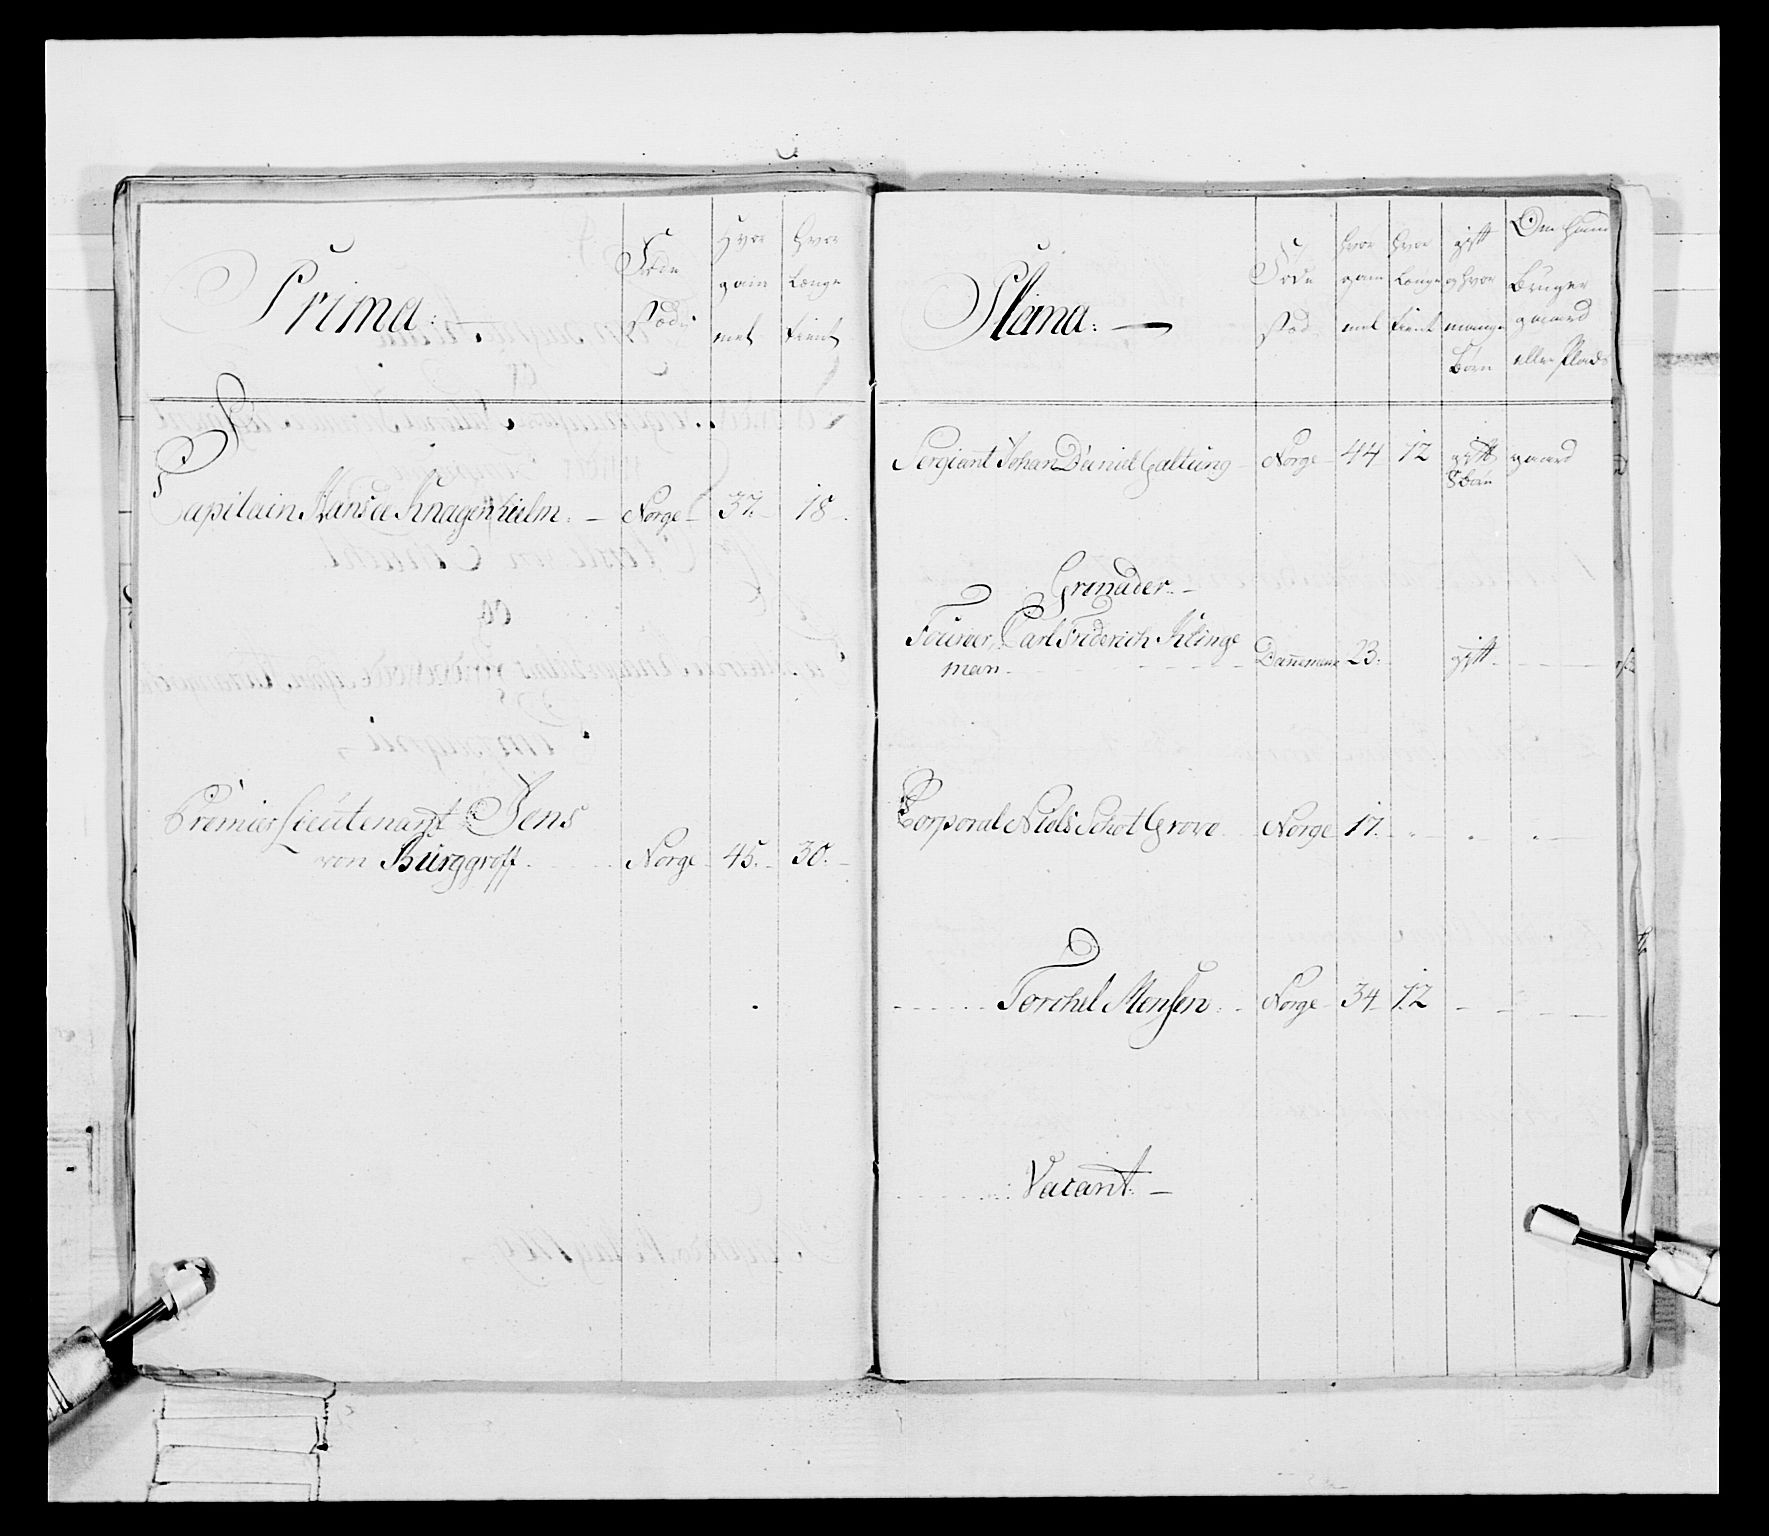 Prima:
Føde
stæd
Hvor
gam
mel
Hvor
Længe
tient
Capitain Hans de Knagenhielm. Norge 37. 18.
Premier Lieutenant Jens
von Bürggroff. Norge 45. 30.
Plana:
Føde
stæd
Hvor
gam
mel
Hvor
Længe
tient
gift
og hvor
mange
Børn
Om hand
Bruger
gaard
eller Plads
Sergiant Johan Daniel Galtung Norge 44 12 gift gaard
8 børn
Grenader.
Fourier, Carl Friderich Klinge
man. Dannemark 23. gift.
Corporal Niels Schot Grove Norge 17.
Torchel Monsen Norge 34 12
Vacant.